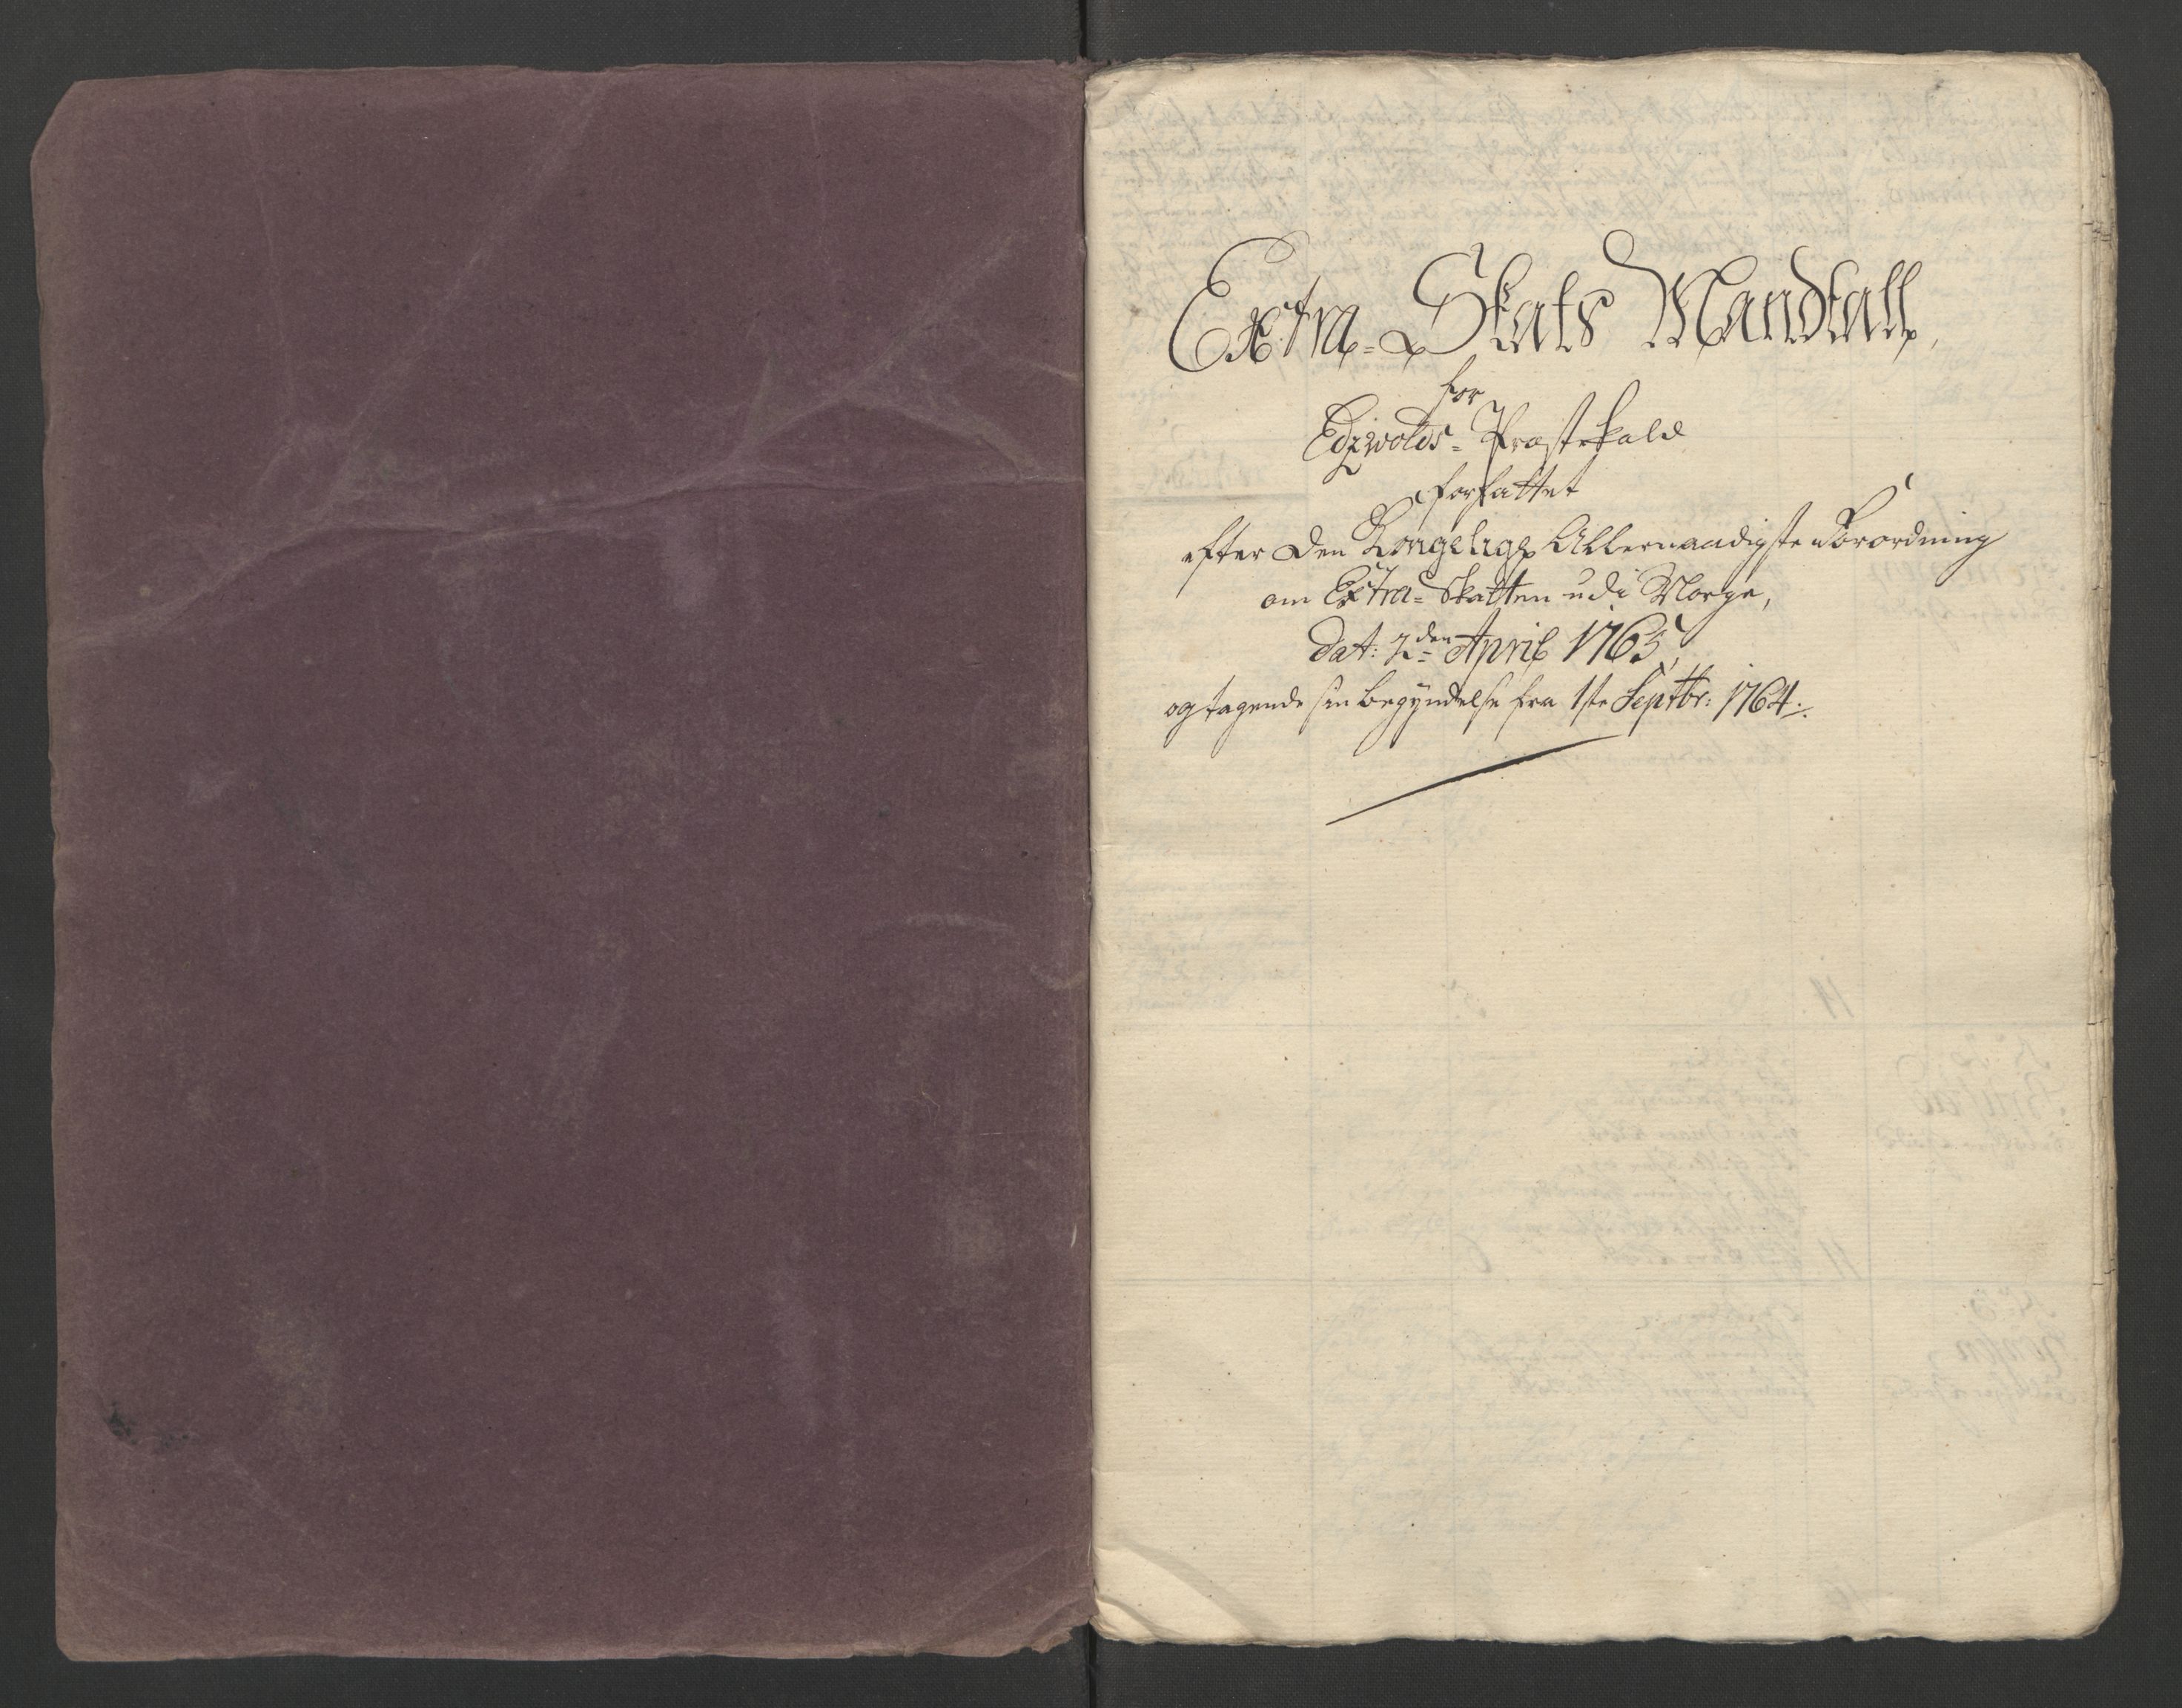 Extra-Skats Mandtall,
for
Edzwolds-Præstekald
forfattet
efter den Kongelige Allernaadigste Forordning
om Extra-Skatten udi Norge,
dat: 2den April 1765,
og tagende sin begyndelse fra 1ste Septbr: 1764.